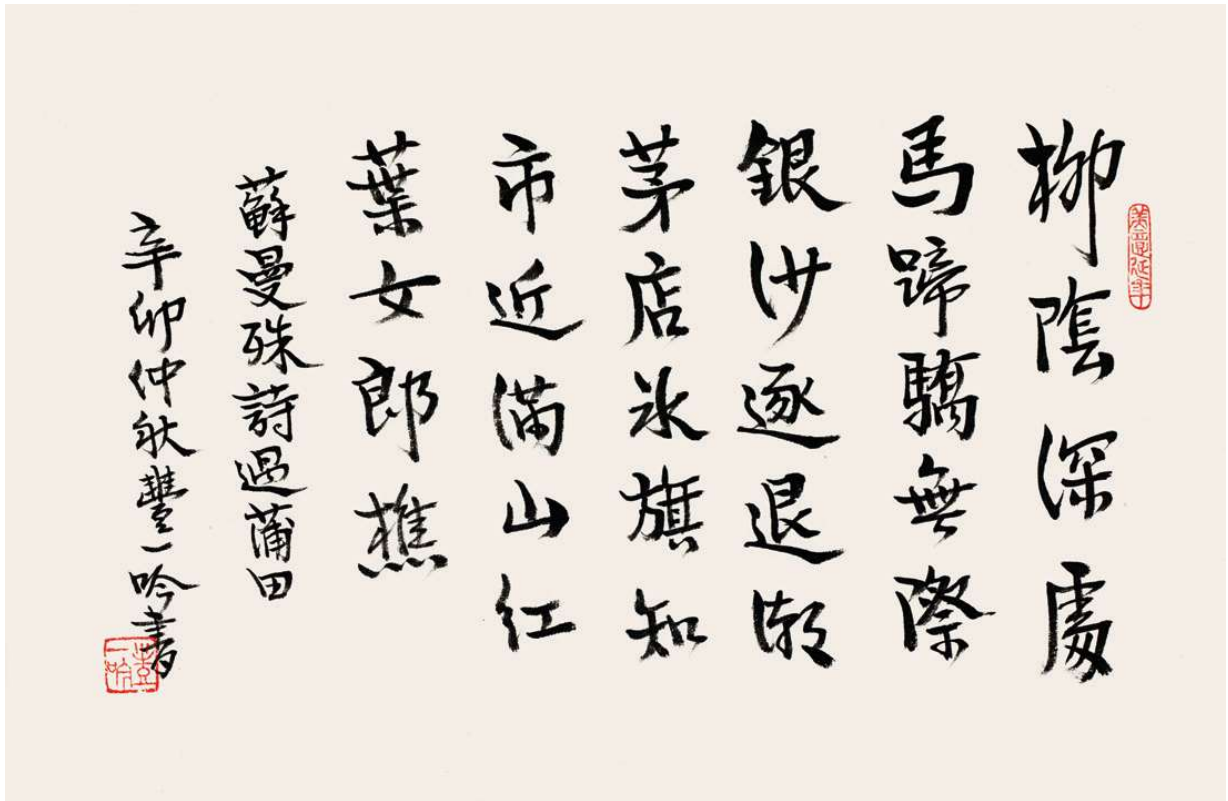 柳陰深處
馬蹄驕無際
銀沙逐退潮
茅店冰旗知
市近滿山红
葉女郎樵
蘇曼殊詩過蒲田
辛卯仲秋豐一吟書
美意延年